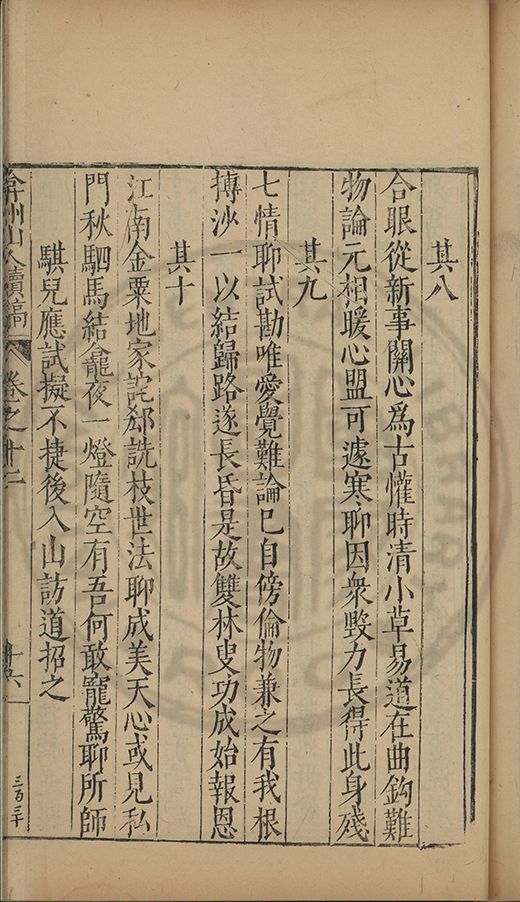 其八
合眼從新事關心爲古懽時清小草易道在曲鈎難
物論元相暖心盟可遽寒聊因衆毀力長得此身殘
其九
七情聊試勘唯愛覺難論巳自傍倫物兼之有我根
摶沙一以結歸路遂長昏是故雙林叟功成始報恩
其十
江南金粟地家詫郄詵枝世法聊成美天心或見私
門秋駟馬結龕夜一燈隨空有吾何敢寵驚聊所師
騏兒應試擬不捷後入山訪道招之
弇州山人續稿
卷之十二
十六
三百三十